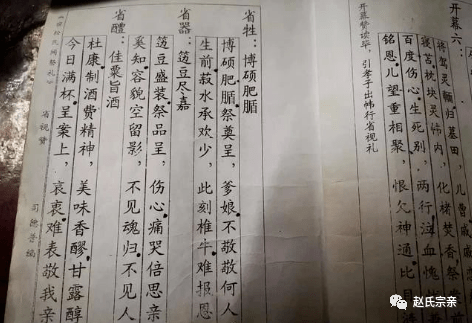 开幕六：
将驾灵輀归墓田，
寝苫枕块灵帏内，化楮焚香祭
百度伤心生死别，两行泣血愧
铭恩儿望重相聚，恨欠神通比目
开幕赞读毕，引孝子出帏行省视礼
省牲：博硕肥腯
博硕肥腯祭奠呈，爹娘不敬敬何人
生前菽水承欢少，此刻椎牛难报恩
省器：笾豆尽嘉
笾豆盛装祭品呈，伤心痛哭倍思亲
奚知容貌空留影，不见魂归不见人
省醴：佳粟旨酒
杜康制酒费精神，美味香醪甘露醇
今日满杯呈案上，哀衷难表敬我亲
省视赞
习德善编
赵氏宗亲